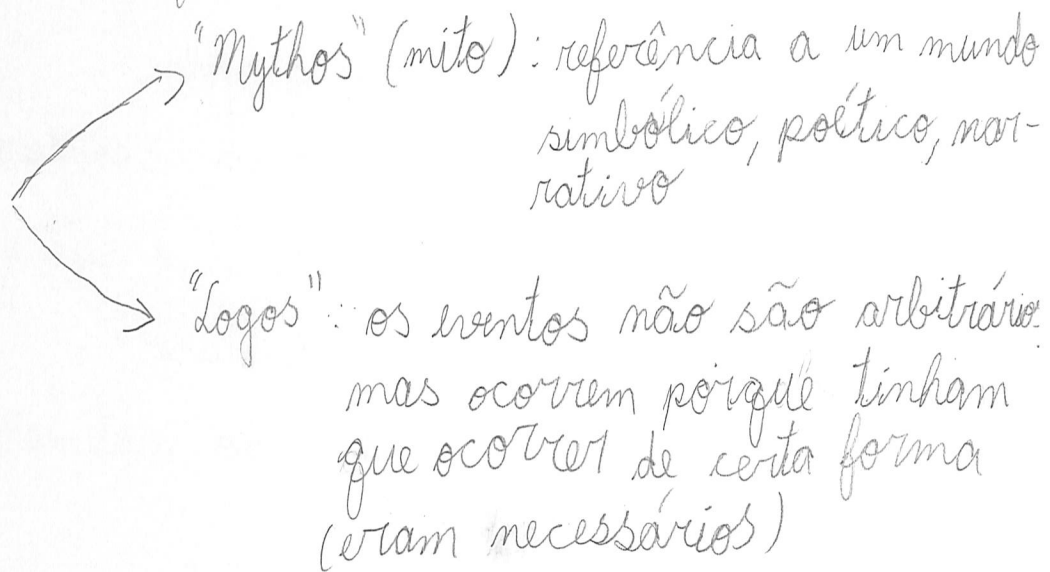 "Mythos" (mito): referência a um mundo
simbólico, poético, nar-
rativo
"Logos": os eventos não são arbitrário
mas ocorrem porque tinham
que ocorrer de certa forma
(eram necessários)